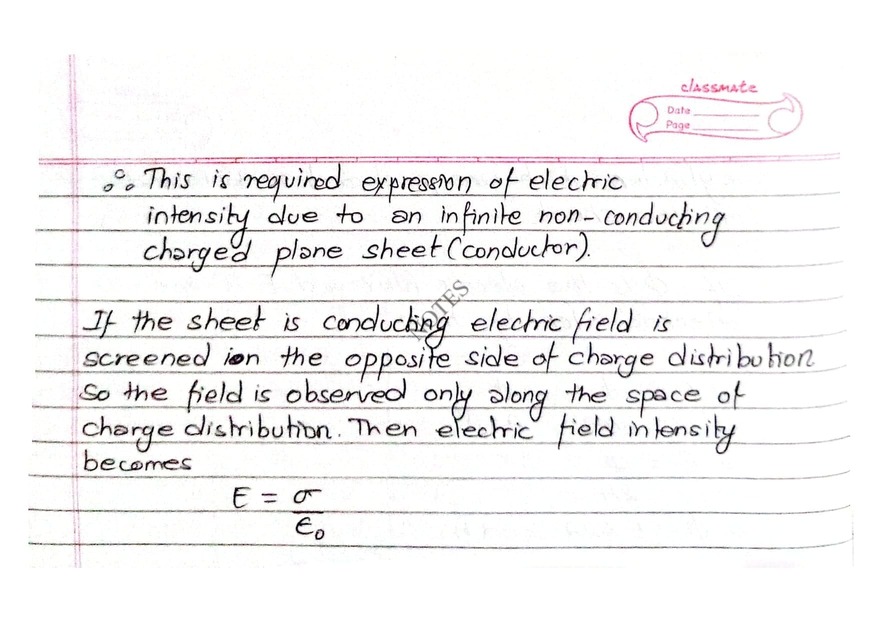 classmate
Date
Page
∴ This is required expression of electric
intensity due to an infinite non-conducting
charged plane sheet (conductor).
NOTES
If the sheet is conducting electric field is
screened on the opposite side of charge distribution
So the field is observed only along the space of
charge distribution. Then electric field intensity
becomes
E = σ
ϵ₀